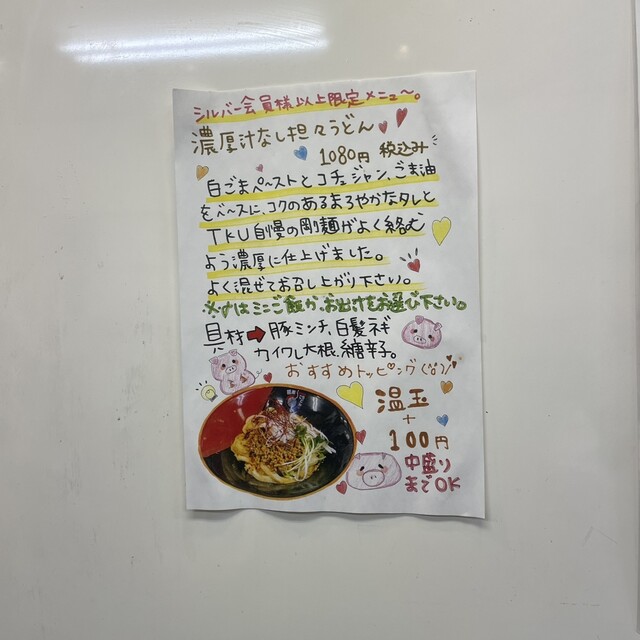 シルバー会員様以上限定メニュ〜。
濃厚汁なし担々うどん
1080円 税込み
白ごまペーストとコチュジャン、ごま油
をベースに、コクのあるまろやかなタレと
TKU自慢の剛麺がよく絡む
よう濃厚に仕上げました。
よく混ぜてお召し上がり下さい。
※〆はミニご飯か、お出汁をお選び下さい。
具材➡豚ミンチ、白髪ネギ
カイワレ大根、糸唐辛子。
おすすめトッピング
温玉
+
100円
中盛り
までOK